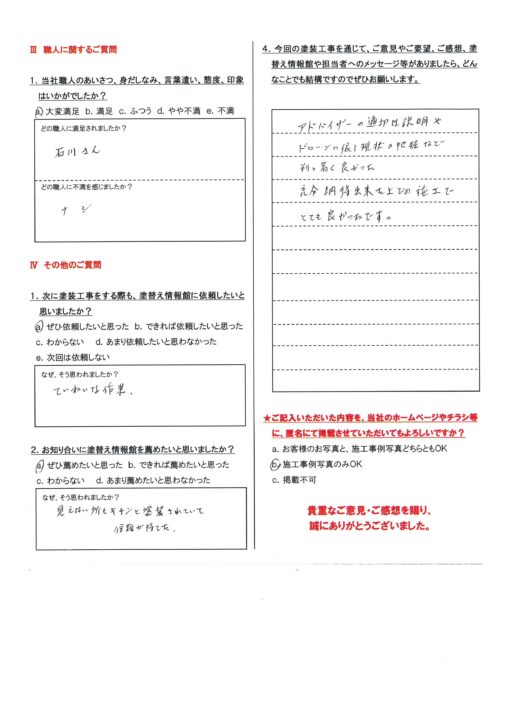 Ⅲ 職人に関するご質問
1. 当社職人のあいさつ、身だしなみ、言葉遣い、態度、印象
はいかがでしたか？
a. 大変満足 b. 満足 c. ふつう d. やや不満 e. 不満
どの職人に満足されましたか？
石川さん
どの職人に不満を感じましたか？
ナシ
Ⅳ その他のご質問
1. 次に塗装工事をする際も、塗替え情報館に依頼したいと
思いましたか？
a. ぜひ依頼したいと思った b. できれば依頼したいと思った
c. わからない d. あまり依頼したいと思わなかった
e. 次回は依頼しない
なぜ、そう思われましたか？
ていねいな作業.
2. お知り合いに塗替え情報館を薦めたいと思いましたか？
a. ぜひ薦めたいと思った b. できれば薦めたいと思った
c. わからない d. あまり薦めたいと思わなかった
なぜ、そう思われましたか？
見えない所もキチンと塗装されていて
信頼が持てた.
4. 今回の塗装工事を通じて、ご意見やご要望、ご感想、塗
替え情報館や担当者へのメッセージ等がありましたら、どん
なことでも結構ですのでぜひお願いします。
アドバイザーの適切な説明や
ドローンに依る現状の把握など
利っ高く良かった
充分納得出来た上での施工で
とても良かったです。
★ご記入いただいた内容を、当社のホームページやチラシ等
に、匿名にて掲載させていただいてもよろしいですか？
a. お客様のお写真と、施工事例写真どちらともOK
b. 施工事例写真のみOK
c. 掲載不可
貴重なご意見・ご感想を賜り、
誠にありがとうございました。